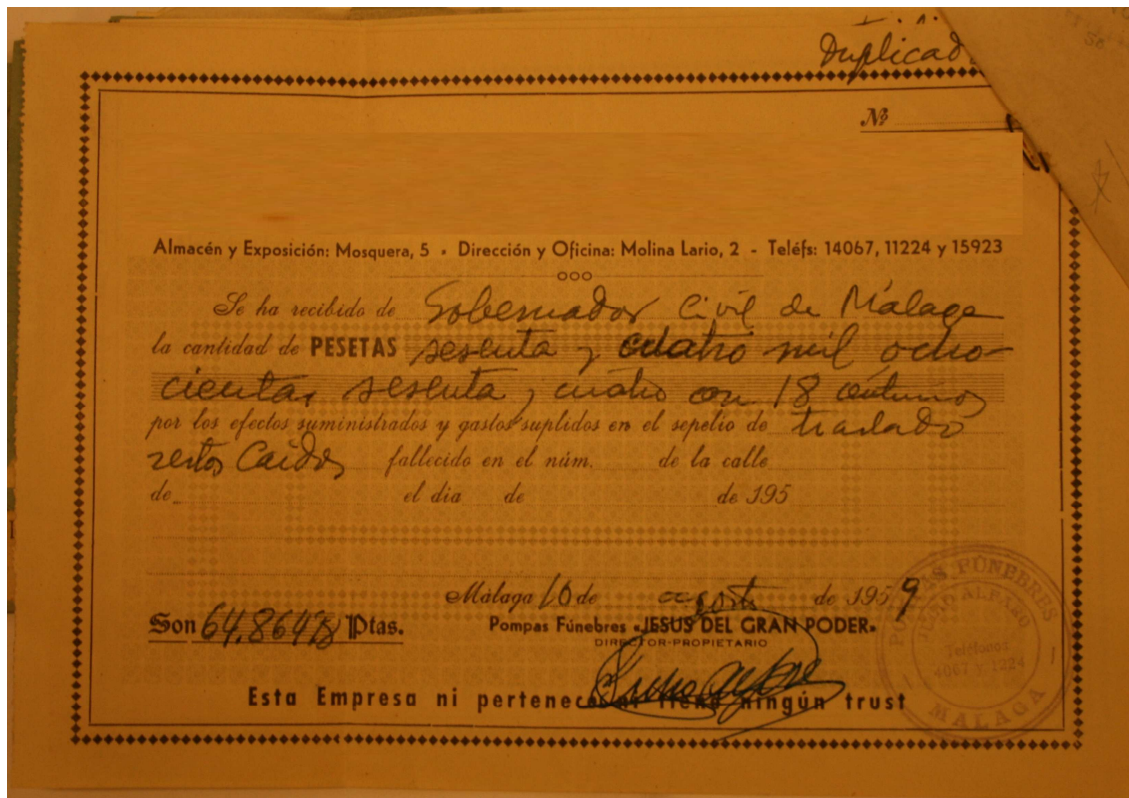 Duplicado
Nº
Almacén y Exposición: Mosquera, 5 - Dirección y Oficina: Molina Lario, 2 - Teléfs: 14067, 11224 y 15923
Se ha recibido de Gobernador Civil de Málaga
la cantidad de PESETAS sesenta y cuatro mil ocho-
cientas sesenta y cuatro con 18 céntimos
por los efectos suministrados y gastos suplidos en el sepelio de traslado
restos Caidos fallecido en el núm. de la calle
de el dia de de 195
Málaga 10 de agosto de 1959
Son 64.864'18 Ptas.
Pompas Fúnebres «JESUS DEL GRAN PODER»
DIRECTOR-PROPIETARIO
Esta Empresa ni pertenece ni tiene ningún trust
POMPAS FÚNEBRES
Teléfonos
4067 y 1224
MALAGA